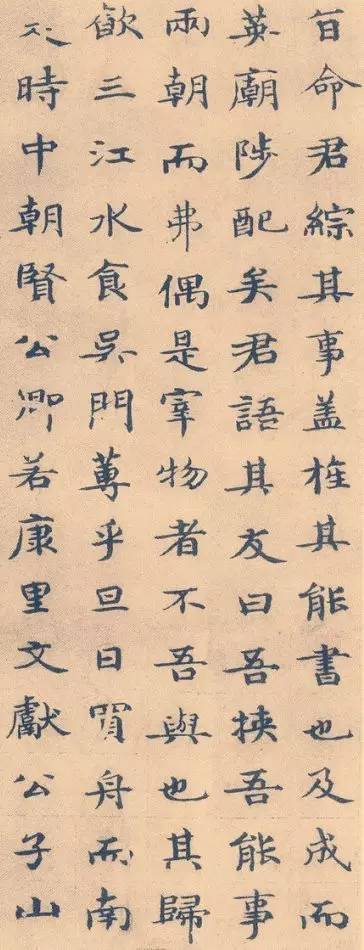 旨命君綜其事盖推其能書也及成而
英廟陟配矣君語其友曰吾挾吾能事
兩朝而弗偶是宰物者不吾與也其歸
㱃三江水食吳門蓴乎旦日買舟而南
時中朝賢公卿若康里文獻公子山